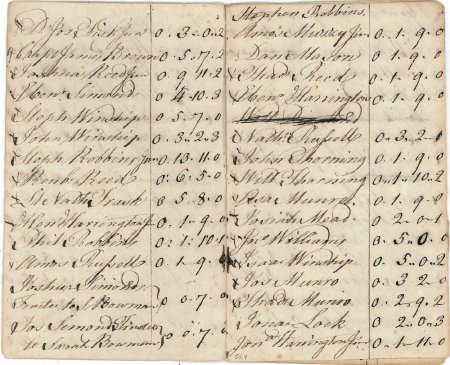 Dr Jos Fisk Jun 0.. 3..0..2
Capt James Brown 0.. 5..17..2
Joshua Reed Ju 0.. 9..11..2
Ebenr Simond 0. 4..10..3
Steph Winship 0 5..7..0
John Winship 0..3..2..3
Steph Robbins Ju 0..13..11..0
Benb Reed 0: 6..5..0
Dr Nath Trask 0 5..8..0
Hen Harrington Ju 0..1..9..0
Phil Robbins 0:: 1::10..1
Amos Russell 0..1..9
Joshua Simonds
to S Bowman 0..0..7..0
Jos Semond
to Sarah Bowman 0..0..7..0
Stephen Robbins
Amos Muzzy Jur 0..1..9..0
Dan Mason 0..1..9..0
Thad Reed 0..1..9..0
Henr Harrington 0..1..9..0
Nath Russell 0..3..2..1
John Thorning 0..1..9..0
Will Thorning 0..1..10..2
Asa Munro 0..1..9..0
Josiah Mead 0..2..0..1
Jno Williams 0..5..0..0
Isaac Winship 0..5..0..2
Jos Munro 0..3 2..0
Thad Munro 0..2..9..2
Jonas Lock 0 2..0..3
Jon Harrington Ju 0..1..11..0
519